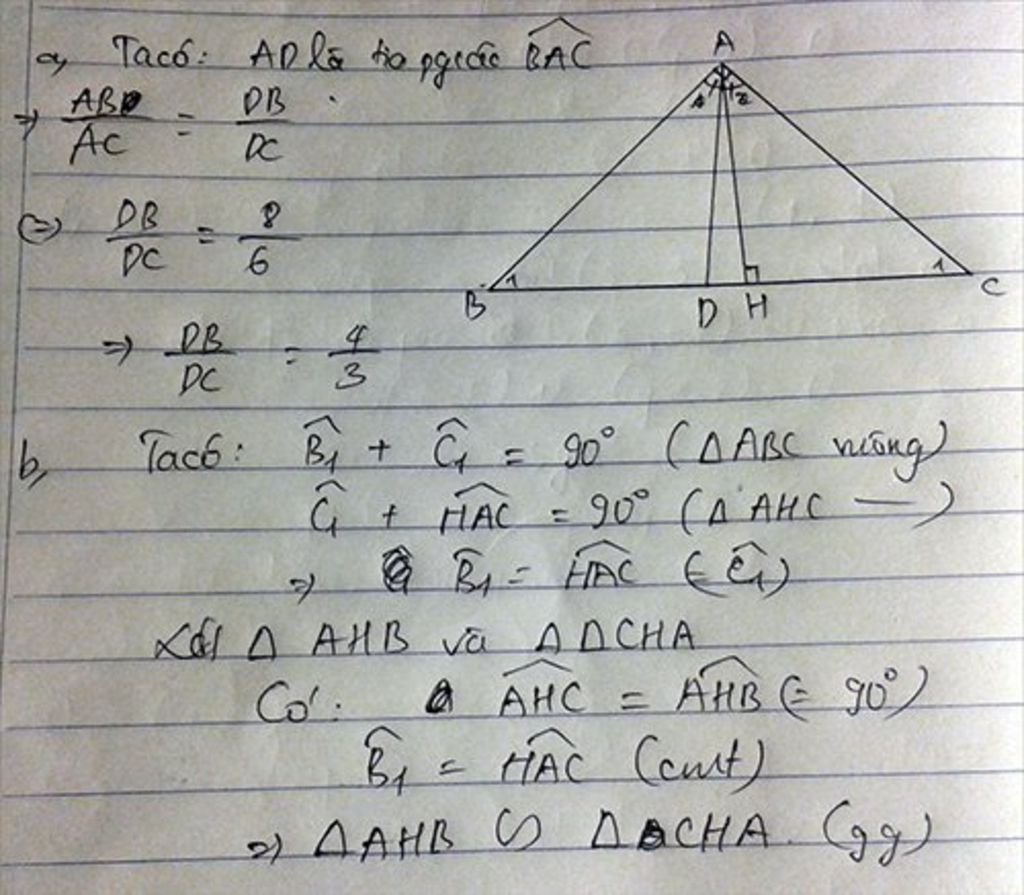 a, Ta có: AD là tia pgiác BAC
=> AB/AC = DB/DC
<=> DB/DC = 8/6
=> DB/DC = 4/3
A
1 2
B 1 D H 1 C
b, Ta có: B̂1 + Ĉ1 = 90° (Δ ABC vuông)
Ĉ1 + HAC = 90° (Δ AHC —)
=> B̂1 = HAC (= Ĉ1)
Xét Δ AHB và ΔΔCHA
Có: AHC = AHB (= 90°)
B̂1 = HAC (cmt)
=> ΔAHB ∽ Δ CHA. (gg)